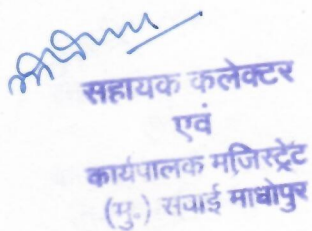 सहायक कलेक्टर
एवं
कार्यपालक मजिस्ट्रेट
(मु.) सवाई माधोपुर